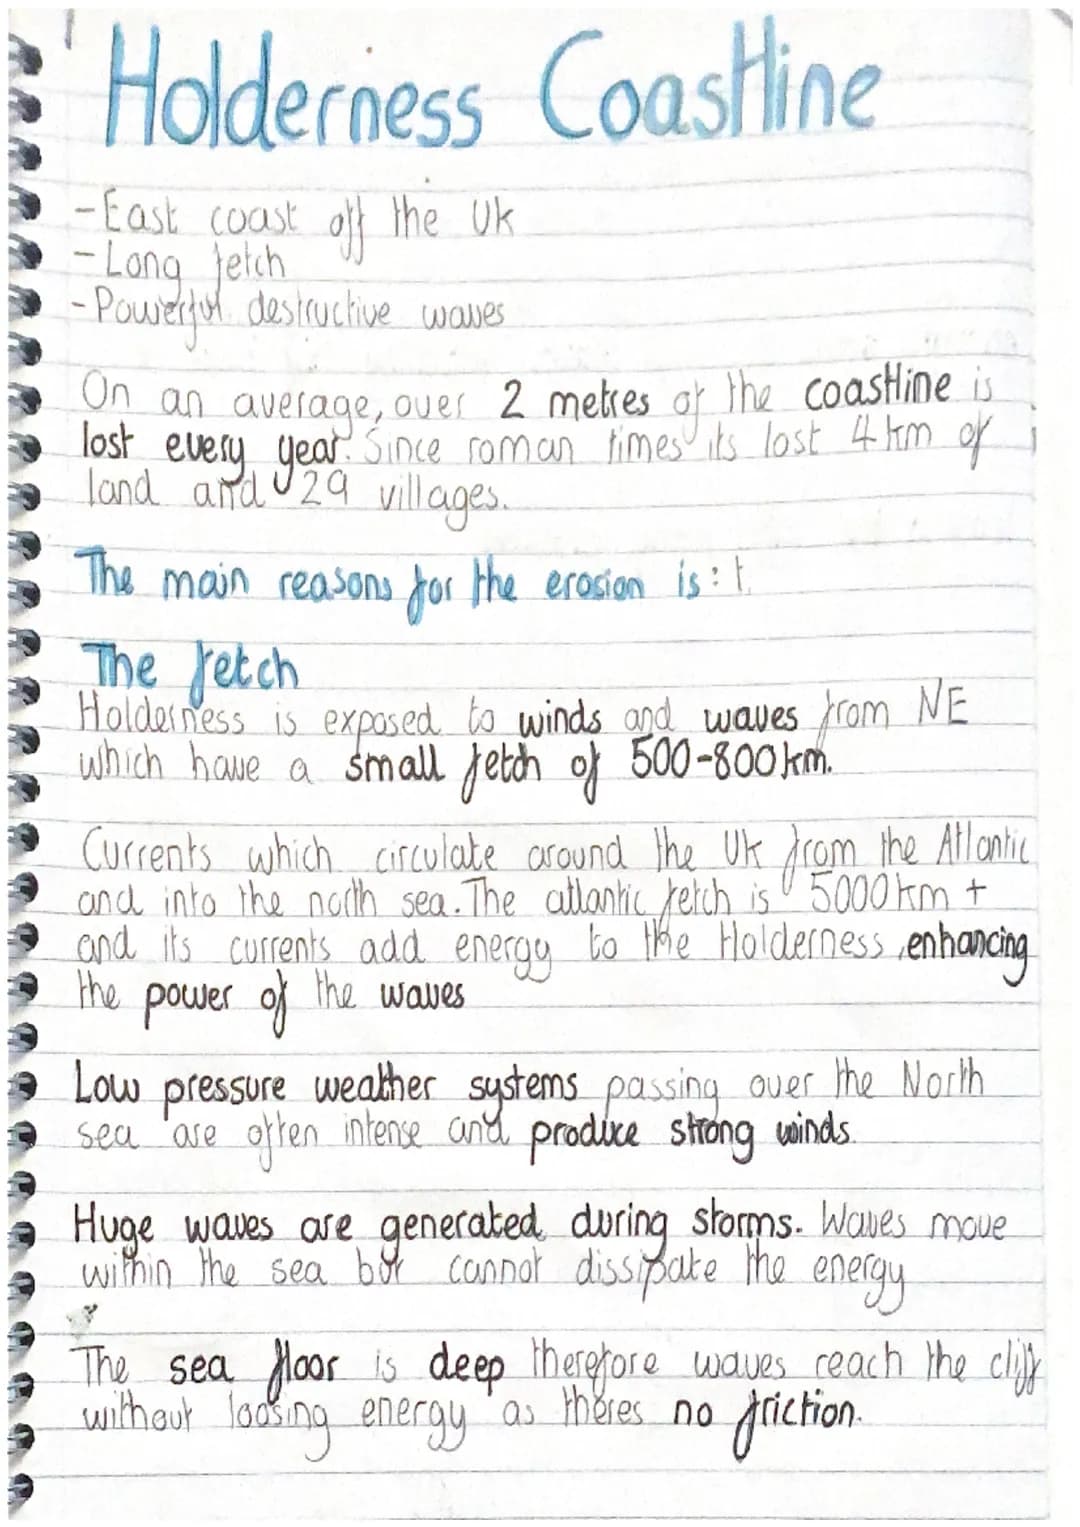 Holderness Coastline
-East coast off the UK
-Long fetch
-Powerful destructive waves
On an average, over 2 metres of the coastline is
lost every year. Since roman times its lost 4km of
land and 29 villages.
The main reasons for the erosion is:
The fetch
Holderness is exposed to winds and waves from NE
which have a small fetch of 500-800km.
Currents which circulate around the UK from the Atlantic
and into the north sea. The atlantic fetch is 5000km +
and its currents add energy to the Holderness, enhancing
the power of the waves
Low pressure weather systems passing over the North
sea are often intense and produce strong winds.
Huge waves are generated during storms. Waves move
within the sea but cannot dissipate the energy
The sea floor is deep therefore waves reach the cliff
without loosing energy as theres no friction.